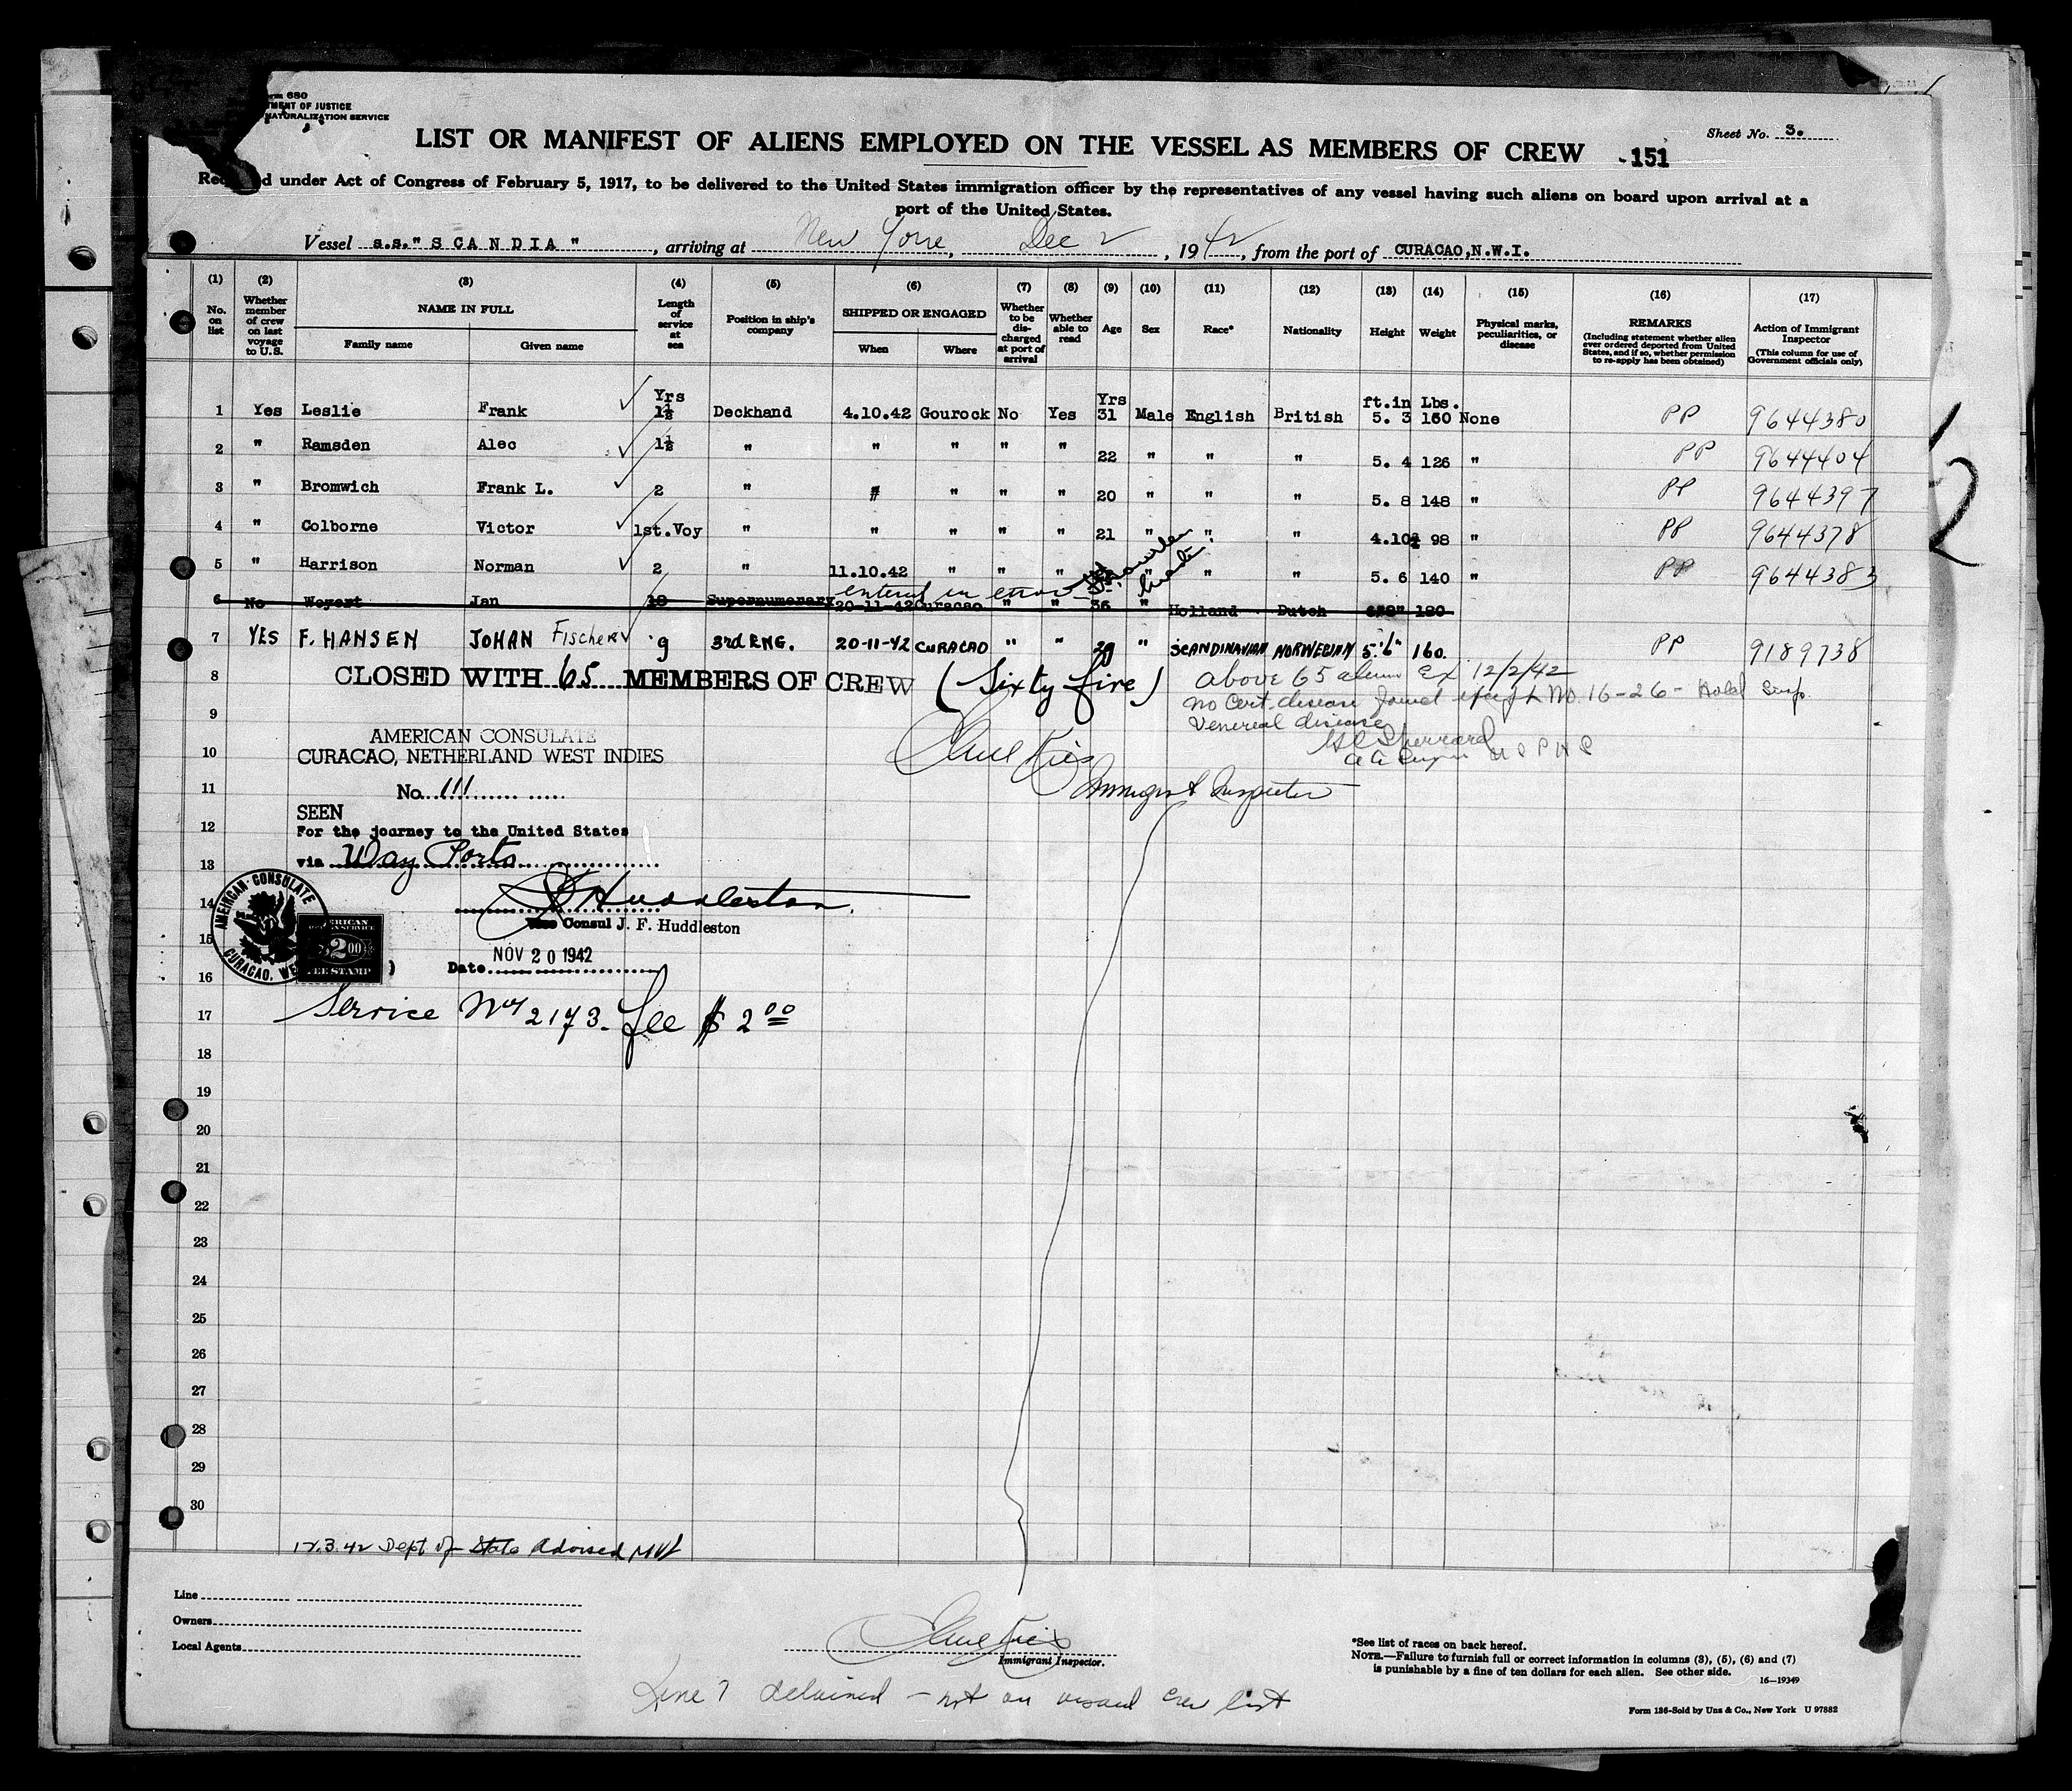 rm 680
TMENT OF JUSTICE
NATURALIZATION SERVICE
Sheet No. 3.
LIST OR MANIFEST OF ALIENS EMPLOYED ON THE VESSEL AS MEMBERS OF CREW
-151
under Act of Congress of February 5, 1917, to be delivered to the United States immigration officer by the representatives of any vessel having such aliens on board upon arrival at a
port of the United States.
Vessel s.s."SCANDIA", arriving at New York, Dec 2, 1942, from the port of CURACAO,N.W.I.
(1) No. on list
(2) Whether member of crew on last voyage to U.S.
(3) NAME IN FULL
Family name Given name
(4) Length of service at sea
(5) Position in ship's company
(6) SHIPPED OR ENGAGED
When Where
(7) Whether to be discharged at port of arrival
(8) Whether able to read
(9) Age
(10) Sex
(11) Race*
(12) Nationality
(13) Height
(14) Weight
(15) Physical marks, peculiarities, or disease
(16) REMARKS
(Including statement whether alien ever ordered deported from United States, and if so, whether permission to re-apply has been obtained)
(17) Action of Immigrant Inspector
(This column for use of Government officials only)
Yrs Yrs ft.in Lbs.
1 Yes Leslie Frank 1½ Deckhand 4.10.42 Gourock No Yes 31 Male English British 5. 3 150 None PP 9644380
2 " Ramsden Alec 1½ " " " " " 22 " " " 5. 4 126 " PP 9644404
3 " Bromwich Frank L. 2 " " " " " 20 " " " 5. 8 148 " PP 9644397
4 " Colborne Victor 1st.Voy " " " " " 21 " " " 4.10½ 98 " PP 9644378
5 " Harrison Norman 2 " 11.10.42 " " " " " " 5. 6 140 " PP 9644383
entered in error
6 No Weyert Jan 18 Supernumerary 20-11-42 Curacao " " 36 " Holland Dutch 6"8" 180
7 YES F. HANSEN JOHAN Fischer 9 3rd ENG. 20-11-42 CURACAO " " 29 " SCANDINAVIAN NORWEGIAN 5'.6" 160. PP 9189738
8 CLOSED WITH 65 MEMBERS OF CREW (Sixty five)
above 65 aliens Ex 12/2/42
No Cert. disease found except No. 16-26- Hold Susp.
Venereal disease
9
AMERICAN CONSULATE
10 CURACAO, NETHERLAND WEST INDIES
U S P H S
11 No. 111
Immigrant Inspector
SEEN
12 For the journey to the United States
13 via Way Ports
14 J F Huddleston
Vice Consul J. F. Huddleston
AMERICAN CONSULATE
CURACAO, WE
ERICAN
$2.00
FEE STAMP
15
Date NOV 20 1942
16
17 Service No 2173. fee $ 2.00
18
19
20
21
22
23
24
25
26
27
28
29
30
12.3.42 Dept of State Advised
2
Line
Owners
Local Agents
Immigrant Inspector.
*See list of races on back hereof.
NOTE.—Failure to furnish full or correct information in columns (3), (5), (6) and (7)
is punishable by a fine of ten dollars for each alien. See other side.
16—19349
Form 136-Sold by Unz & Co., New York U 97882
Line 7 detained - not on visaed crew list